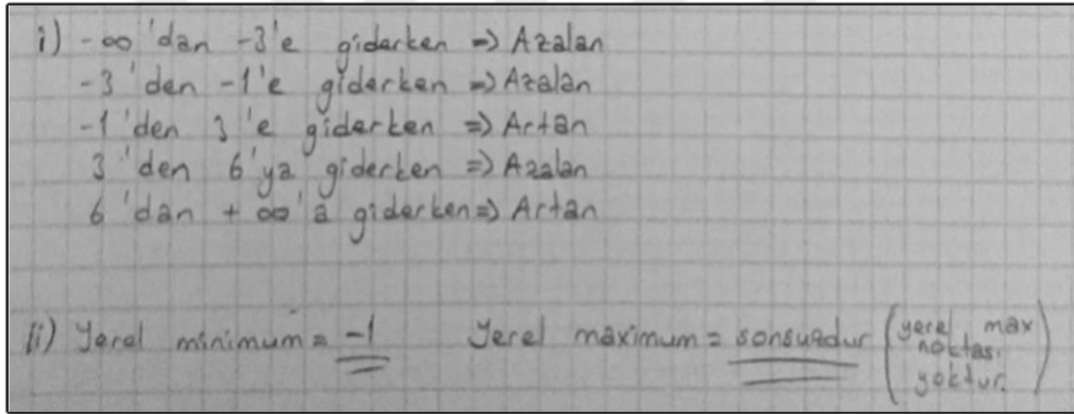 i) -∞'dan -3'e giderken => Azalan
-3'den -1'e giderken => Azalan
-1'den 3'e giderken => Artan
3'den 6'ya giderken => Azalan
6'dan +∞'a giderken => Artan
ii) Yerel minimum = -1 Yerel maximum = sonsuzdur (yerel max
noktası
yoktur.)